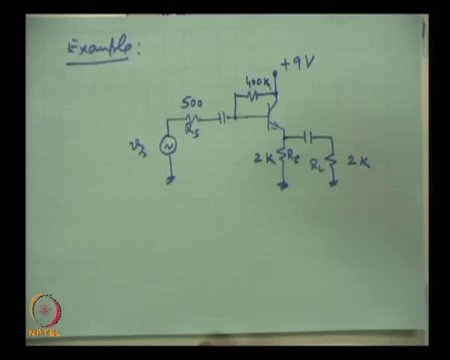 Example:
+9V
400K
500
Rs
vs
2K
RE
RL
2K
NPTEL